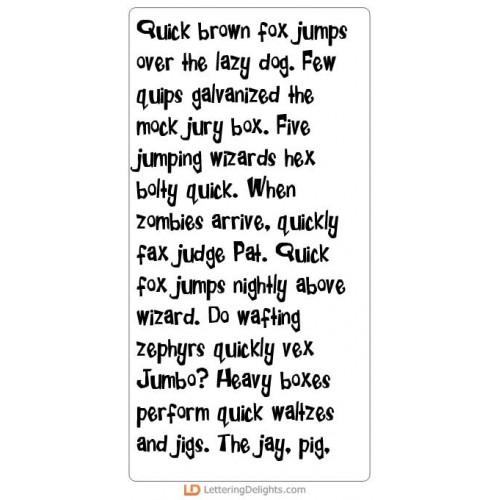 Quick brown fox jumps
over the lazy dog. Few
quips galvanized the
mock jury box. Five
jumping wizards hex
bolty quick. When
zombies arrive, quickly
fax judge Pat. Quick
fox jumps nightly above
wizard. Do wafting
zephyrs quickly vex
Jumbo? Heavy boxes
perform quick waltzes
and jigs. The jay, pig,
LD LetteringDelights.com